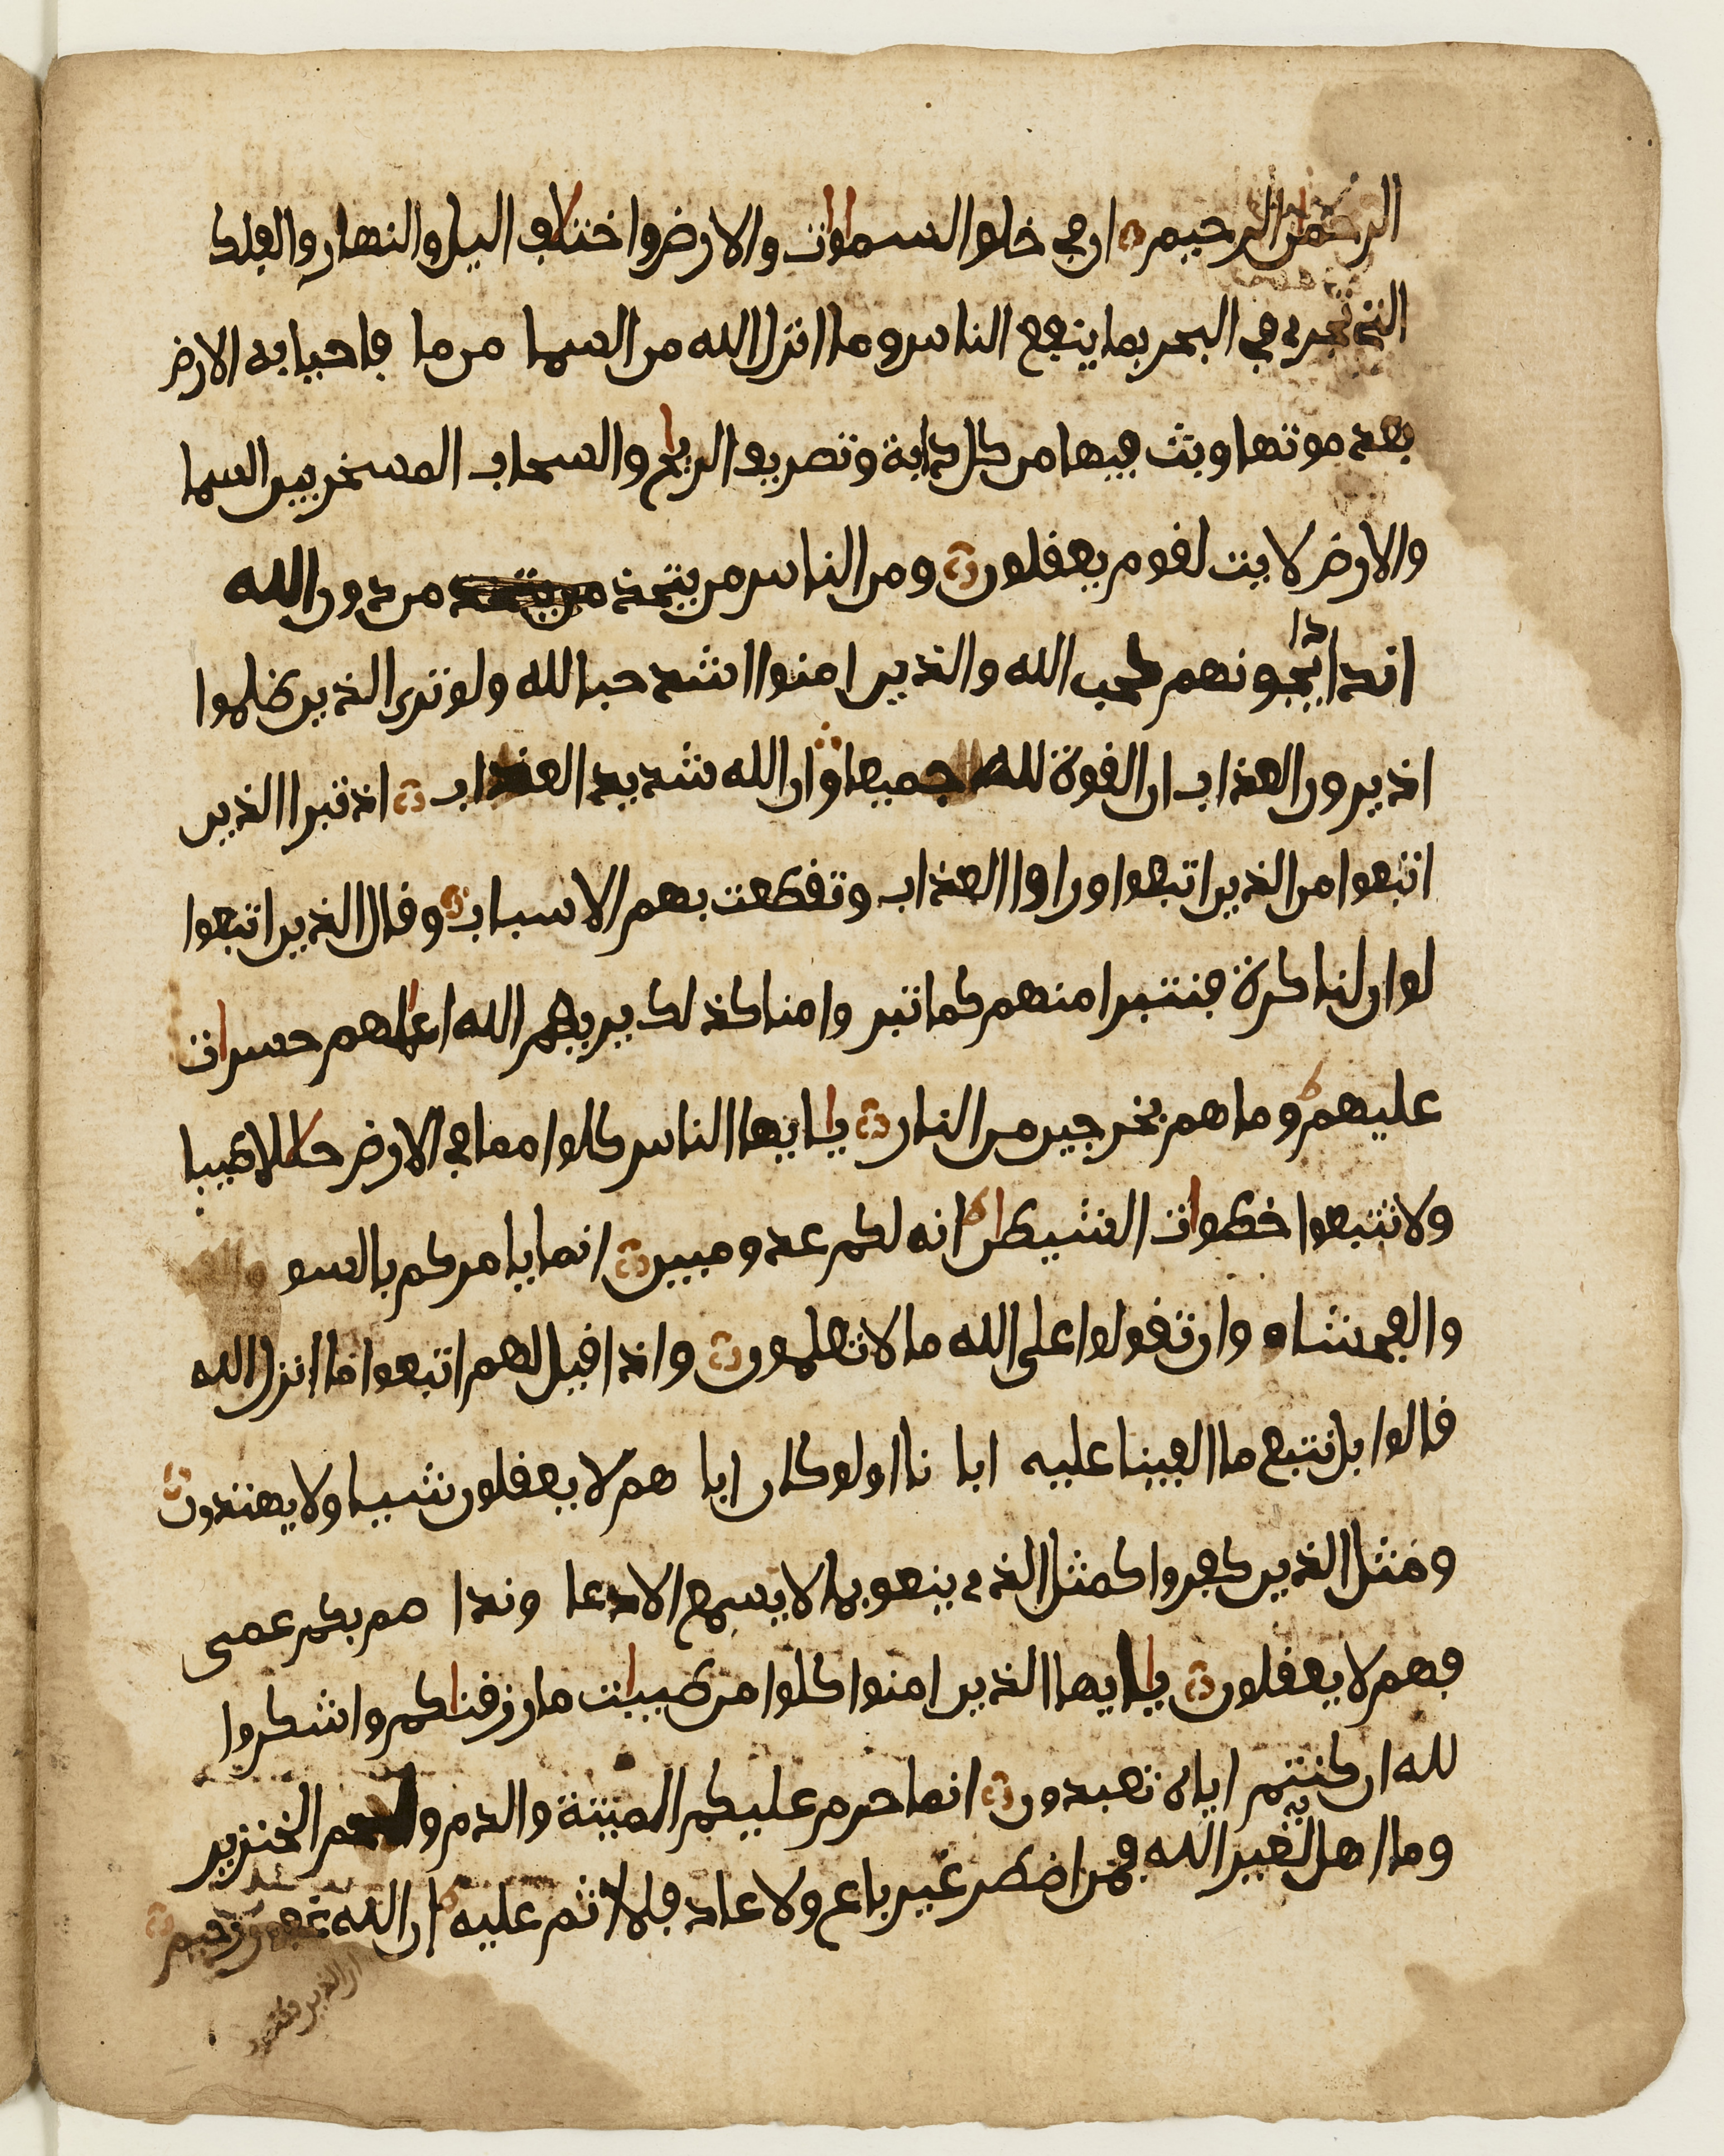 الرحمن الرحيم ان في خلق السموات والارض واختلاف اليل والنهار والفلك
التي تجري في البحر بما ينفع الناس وما انزل الله من السما من ما فاحيا به الارض
بعد موتها وبث فيها من كل دابة وتصريف الريح والسحاب المسخر بين السما
والارض لايت لقوم يعقلون ومن الناس من يتخذ من يتخذ من دون الله
اندادا يحبونهم كحب الله والذين امنوا اشد حبا لله ولو ترى الذين ظلموا
اذ يرون العذاب ان القوة لله جميعا وان الله شديد العذاب اذ تبرا الذين
اتبعوا من الذين اتبعوا وراوا العذاب وتقطعت بهم الاسباب وقال الذين اتبعوا
لو ان لنا كرة فنتبرا منهم كما تبر وا منا كذلك يريهم الله اعملهم حسرات
عليهم وما هم بخرجين من النار يايها الناس كلوا مما في الارض حللا طيبا
ولا تتبعوا خطوات الشيطن انه لكم عدو مبين انما يامركم بالسو
والفحشا وان تقولوا على الله ما لا تعلمون واذا قيل لهم اتبعوا ما انزل الله
قالوا بل نتبع ما الفينا عليه ابا نا اولو كان ابا هم لا يعقلون شيا ولا يهتدون
ومثل الذين كفروا كمثل الذي ينعق بما لا يسمع الا دعا وندا صم بكم عمى
فهم لا يعقلون يايها الذين امنوا كلوا من طيبات ما رزقناكم واشكروا
لله ان كنتم اياه تعبدون انما حرم عليكم الميتة والدم ولحم الخنزير
وما اهل به لغير الله فمن اضطر غير باغ ولا عاد فلا اثم عليه ان الله غفور رحيم
ان الذين